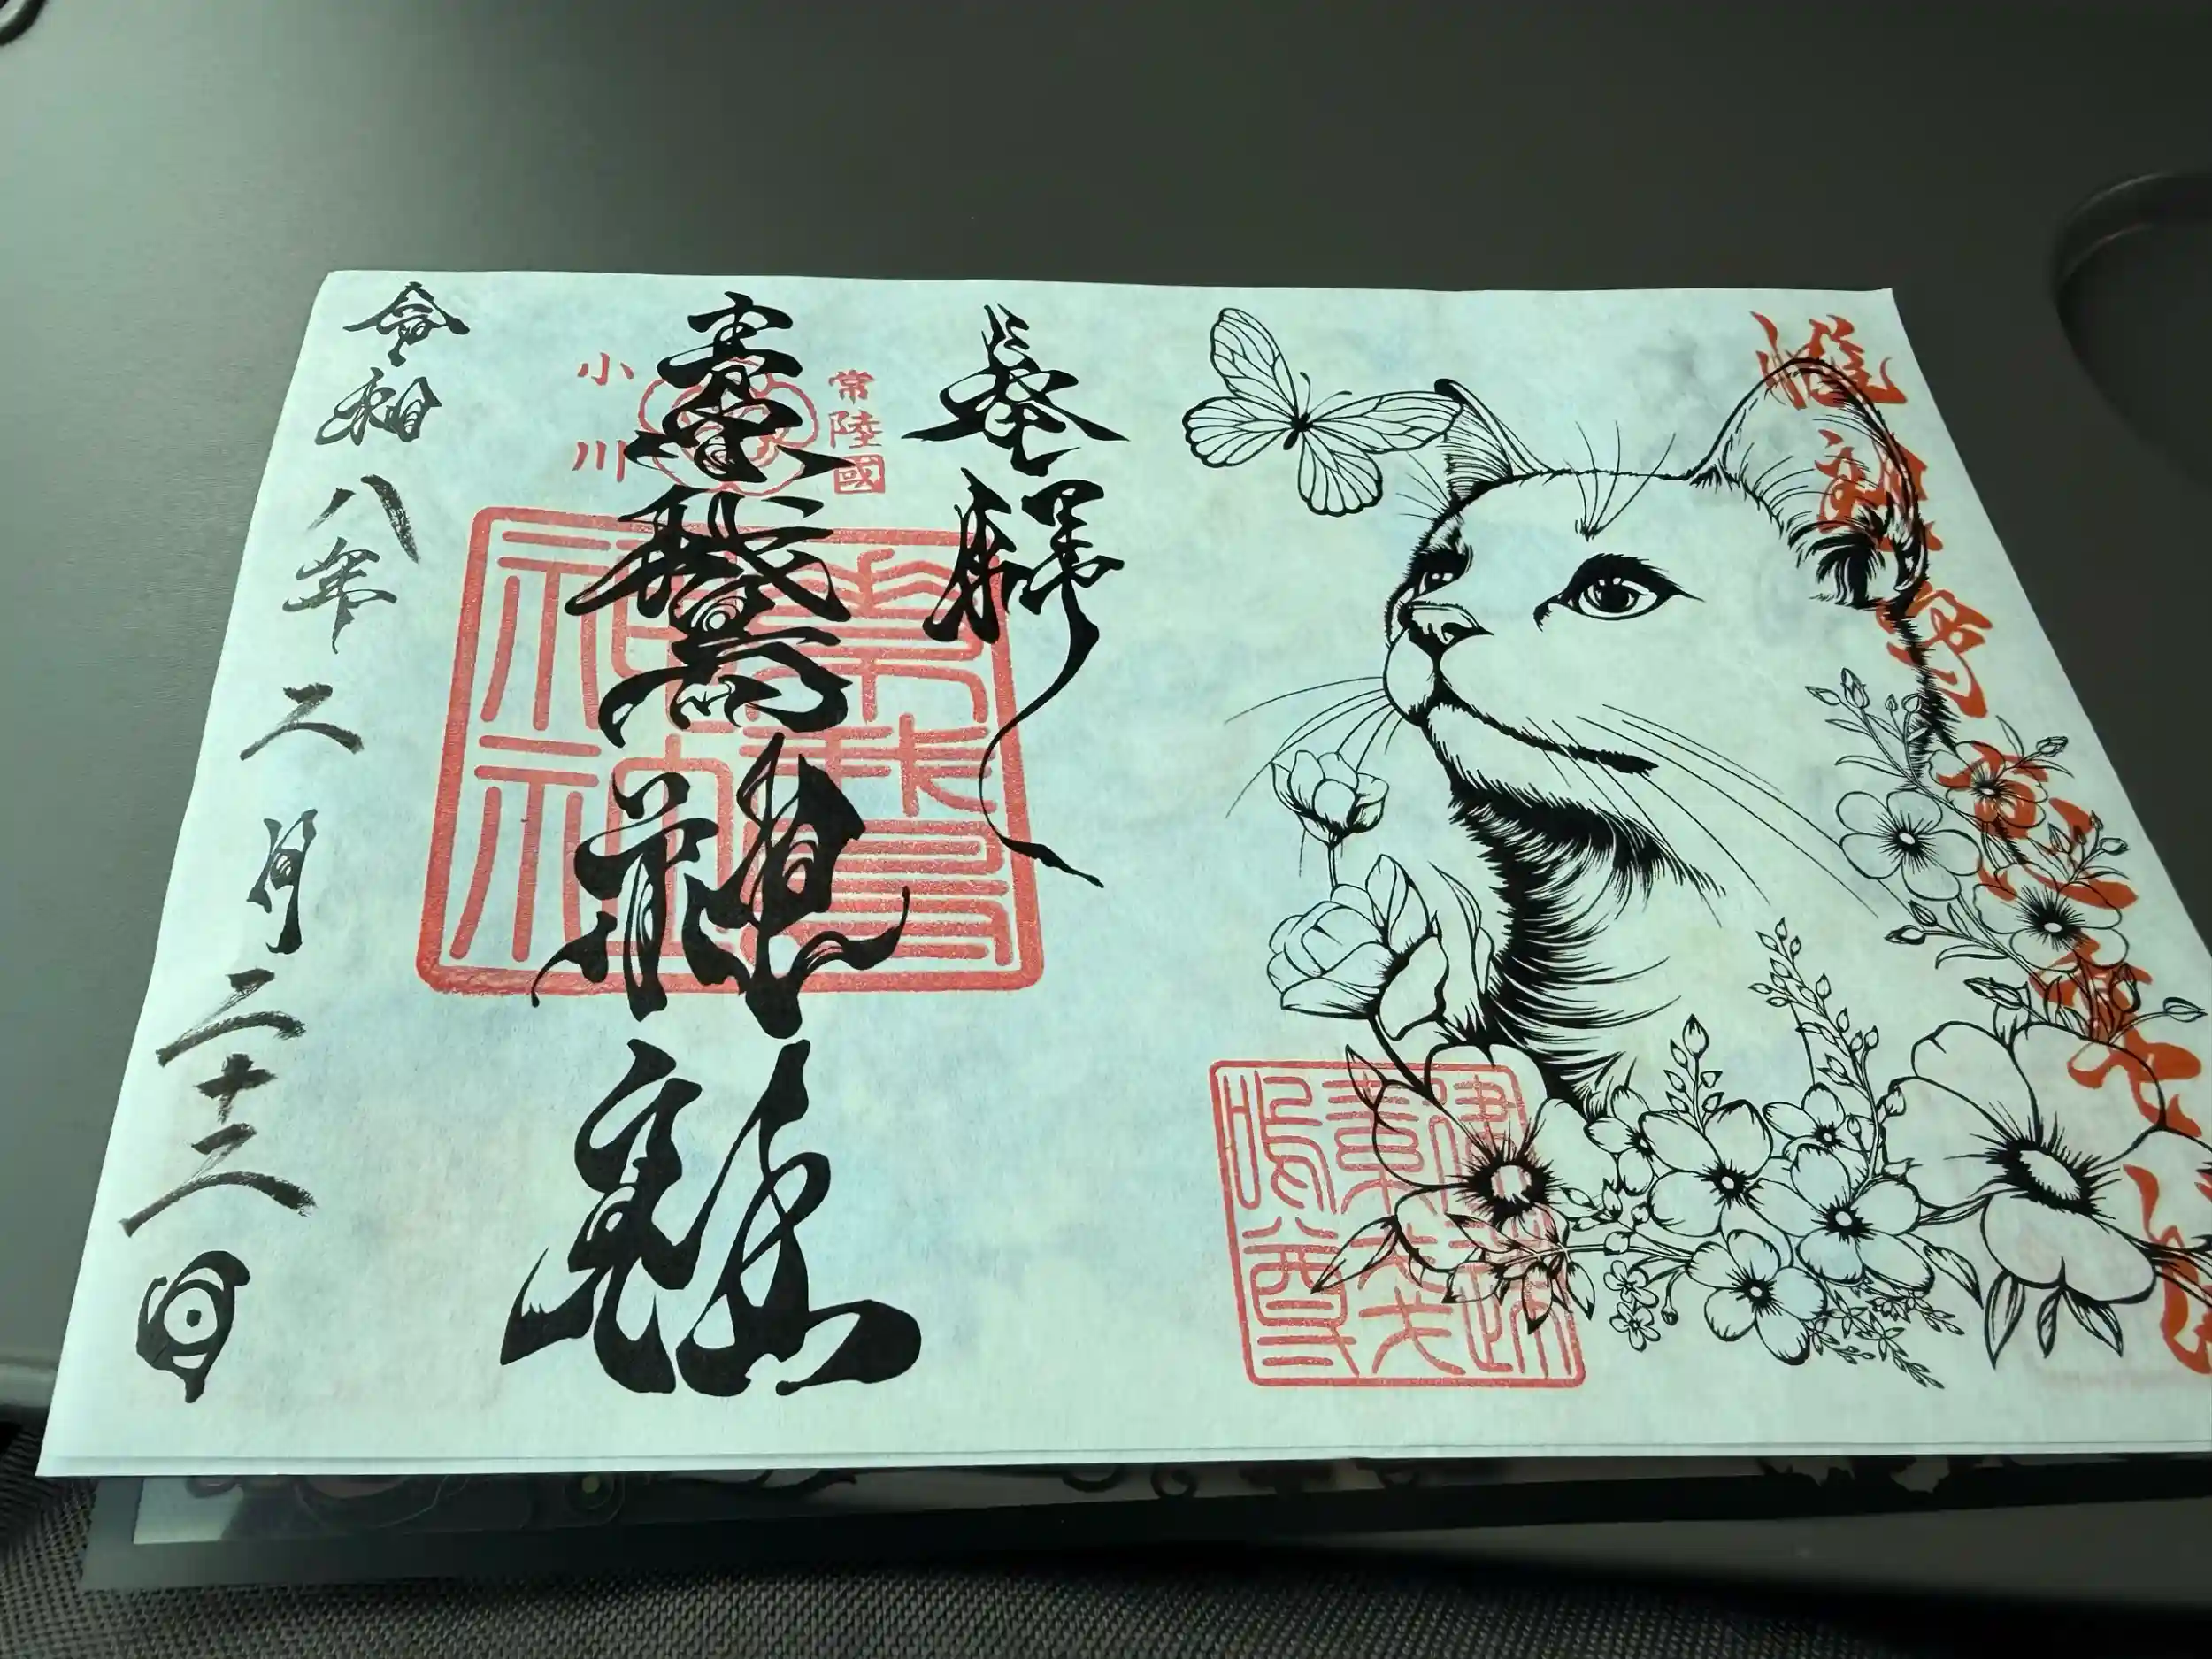 建速
素戔
嗚尊
奉拝
常陸國
小川
素鵞神社
素鵞
神社
令和八年二月二十二日